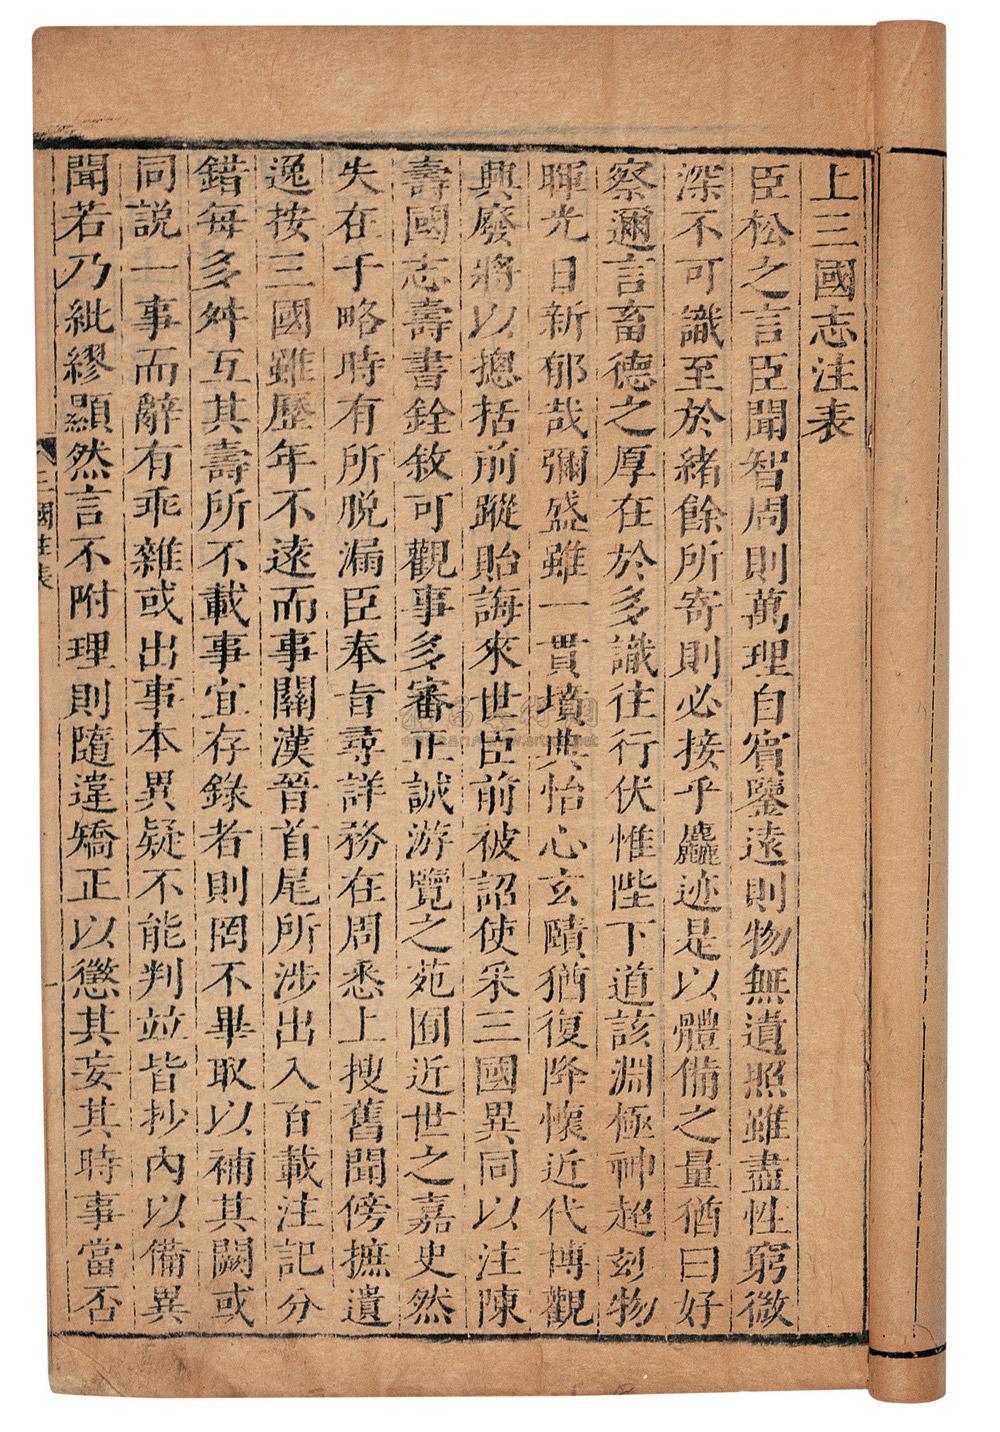 上三國志注表
臣松之言臣聞智周則萬理自賓鑒遠則物無遺照雖盡性窮微
深不可識至於緒餘所寄則必接乎麤迹是以體備之量猶曰好
察邇言畜德之厚在於多識往行伏惟陛下道該淵極神超玅物
暉光日新郁哉彌盛雖一貫墳典怡心玄賾猶復降懷近代博觀
興廢將以摠括前蹤貽誨來世臣前被詔使采三國異同以注陳
壽國志壽書銓敘可觀事多審正誠游覽之苑囿近世之嘉史然
失在于略時有所脫漏臣奉旨尋詳務在周悉上搜舊聞傍摭遺
逸按三國雖歷年不遠而事關漢晉首尾所涉出入百載注記分
錯每多舛互其壽所不載事宜存錄者則罔不畢取以補其闕或
同說一事而辭有乖雜或出事本異疑不能判竝皆抄內以備異
聞若乃紕繆顯然言不附理則隨違矯正以懲其妄其時事當否